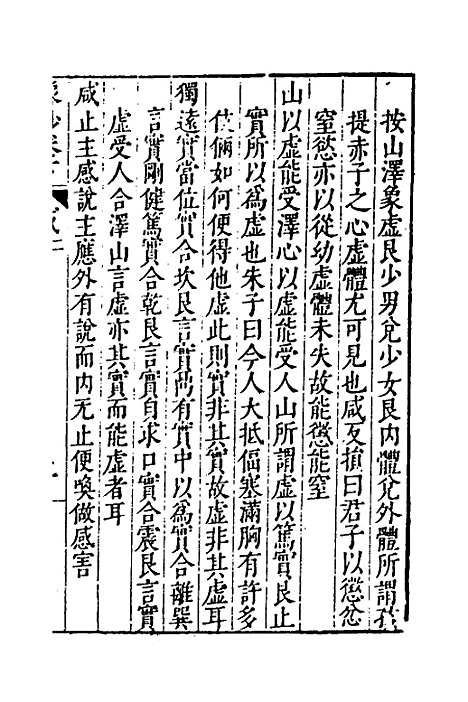 按山澤象虛艮少男兌少女艮内體兌外體所謂孩
提赤子之心虛體尤可見也咸反損曰君子以懲忿
窒慾亦以從幼虛體未失故能懲能窒
山以虛能受澤心以虛能受人山所謂虛以篤實艮止
實所以爲虛也朱子曰今人大抵偪塞滿胸有許多
伎倆如何便得他虛此則實非其實故虛非其虛耳
獨遠實當位實合坎艮言實鬲有實中以爲實合離巽
言實剛健篤實合乾艮言實自求口實合震艮言實
虛受人合澤山言虛亦其實而能虛者耳
咸止主感說主應外有說而内无止便喚做感害